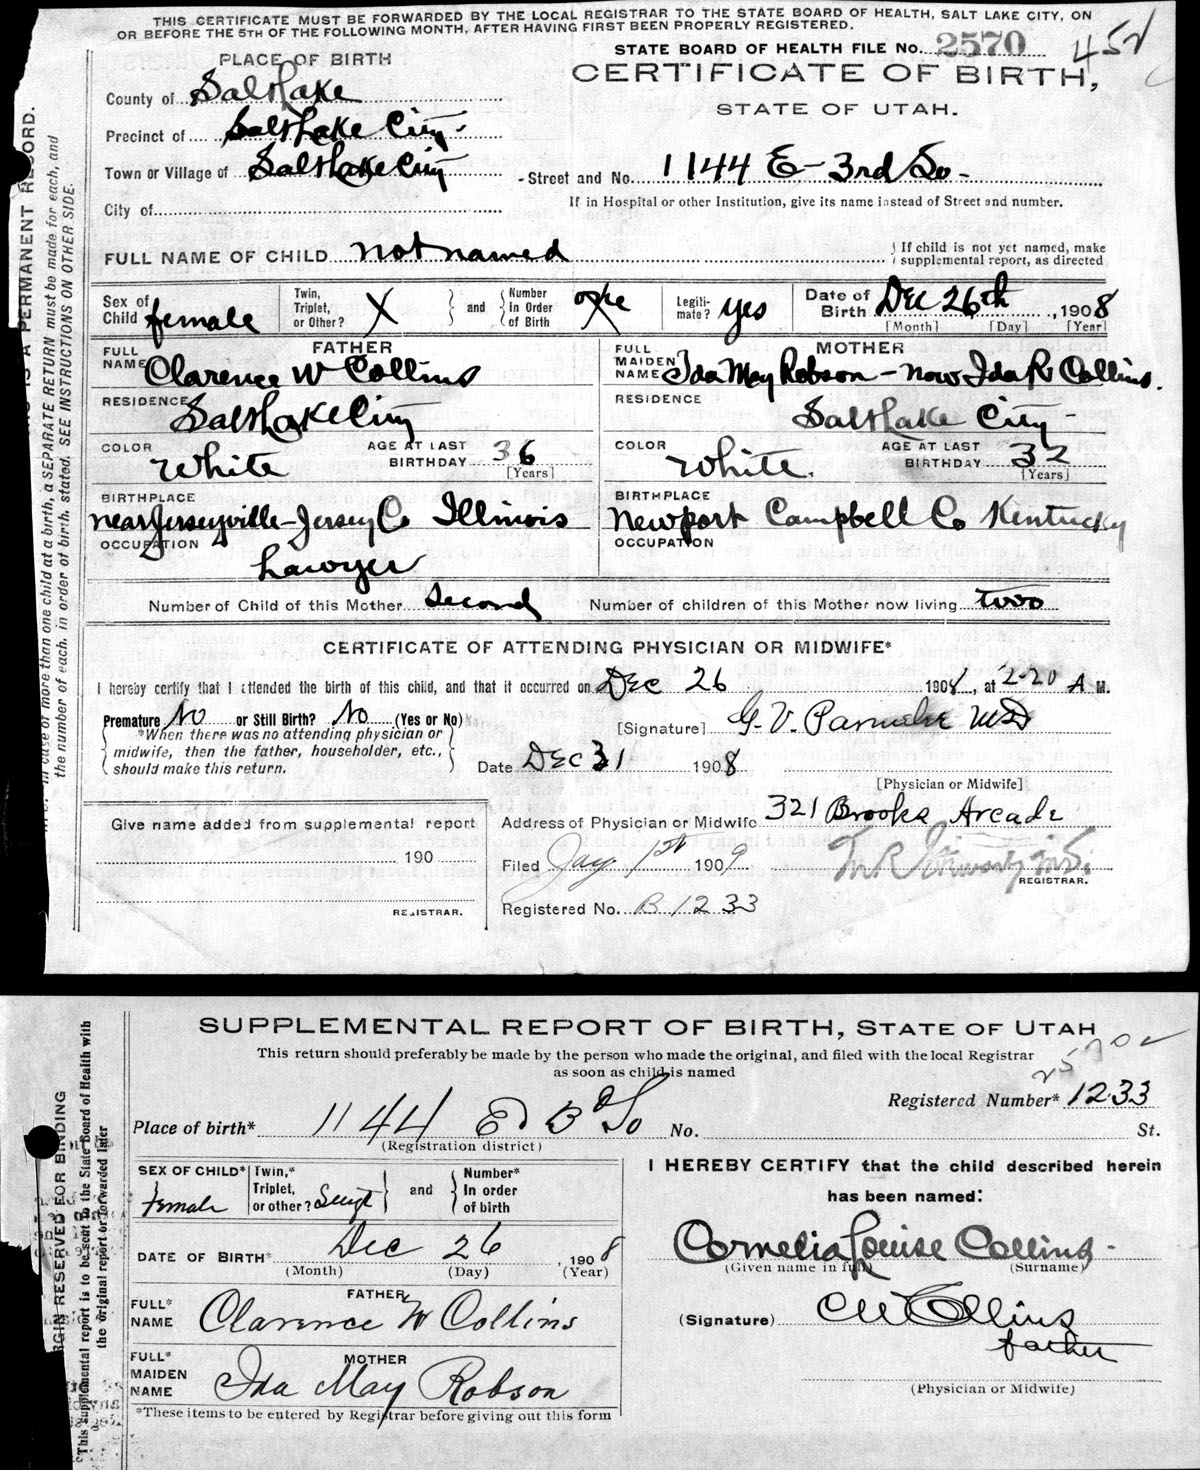 THIS CERTIFICATE MUST BE FORWARDED BY THE LOCAL REGISTRAR TO THE STATE BOARD OF HEALTH, SALT LAKE CITY, ON
OR BEFORE THE 5TH OF THE FOLLOWING MONTH, AFTER HAVING FIRST BEEN PROPERLY REGISTERED.
STATE BOARD OF HEALTH FILE No. 2570
452
PLACE OF BIRTH
CERTIFICATE OF BIRTH,
STATE OF UTAH.
County of Salt Lake
Precinct of Salt Lake City
Town or Village of Salt Lake City
Street and No. 1144 E - 3rd So -
City of
If in Hospital or other Institution, give its name instead of Street and number.
FULL NAME OF CHILD not named
If child is not yet named, make
supplemental report, as directed
Sex of Child female
Twin, Triplet, or Other? X
and
Number In Order of Birth
Legiti-mate? yes
Date of Birth Dec 26th, 1908
[Month] [Day] [Year]
FATHER
FULL NAME Clarence W Collins
RESIDENCE
Salt Lake City
COLOR White
AGE AT LAST BIRTHDAY 36
[Years]
BIRTHPLACE
near Jerseyville - Jersey Co Illinois
OCCUPATION
Lawyer
MOTHER
FULL MAIDEN NAME Ida May Robson - now Ida R Collins.
RESIDENCE
Salt Lake City -
COLOR White.
AGE AT LAST BIRTHDAY 32
[Years]
BIRTHPLACE
Newport Campbell Co Kentucky
OCCUPATION
Number of Child of this Mother Second
Number of children of this Mother now living two
CERTIFICATE OF ATTENDING PHYSICIAN OR MIDWIFE*
I hereby certify that I attended the birth of this child, and that it occurred on Dec 26 1908, at 2-20 A M.
Premature No or Still Birth? No (Yes or No)
*When there was no attending physician or
midwife, then the father, householder, etc.,
should make this return.
[Signature] G. V. Parmelee MD
Date Dec 31 1908
[Physician or Midwife]
Address of Physician or Midwife 321 Brooks Arcade
Filed Jany 1st 1909
REGISTRAR.
Registered No. B 1233
Give name added from supplemental report
190
REGISTRAR.
IS A PERMANENT RECORD.
In case of more than one child at a birth, a SEPARATE RETURN must be made for each, and
the number of each, in order of birth, stated. SEE INSTRUCTIONS ON OTHER SIDE.
SUPPLEMENTAL REPORT OF BIRTH, STATE OF UTAH
This return should preferably be made by the person who made the original, and filed with the local Registrar
as soon as child is named
Registered Number* 1233
Place of birth* 1144 E 3d So No. St.
(Registration district)
SEX OF CHILD* female
Twin,* Triplet, or other?
and
Number* In order of birth
DATE OF BIRTH* Dec 26, 1908
(Month) (Day) (Year)
FATHER
FULL* NAME Clarence W Collins
MOTHER
FULL* MAIDEN NAME Ida May Robson
*These items to be entered by Registrar before giving out this form
I HEREBY CERTIFY that the child described herein
has been named:
Cornelia Louise Collins -
(Given name in full) (Surname)
(Signature) C W Collins
father
(Physician or Midwife)
MARGIN RESERVED FOR BINDING
*This supplemental report is to be sent to the State Board of Health with
the original report or forwarded later